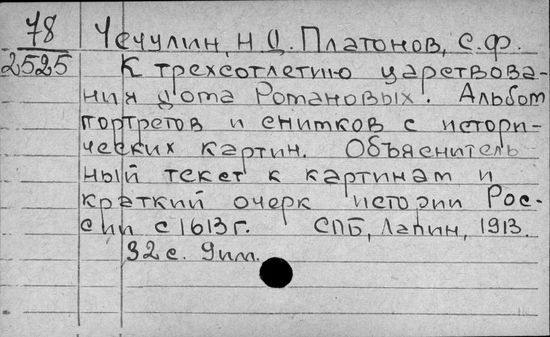 78 Чечулин, Н Д. Платонов, С.Ф.
2525 К трехсотлетию царствова-
ния дома Романовых. Альбом
портретов и снимков с истори-
ческих картин. Объяснитель
ный текст к картинам и
краткий очерк истории Рос-
сии с 1613 г. СПБ, Лапин, 1913.
32 с. 9 илл.